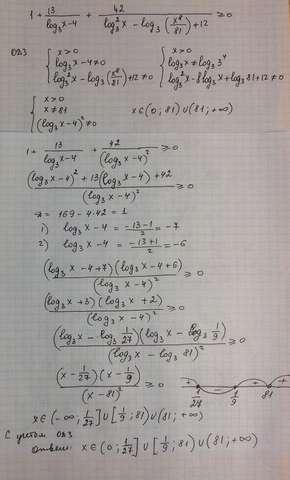 1 + 13/(log₃x-4) + 42/(log₃²x - log₃(x⁸/81) + 12) ≥ 0
ОДЗ { x > 0
log₃x - 4 ≠ 0
log₃²x - log₃(x⁸/81) + 12 ≠ 0
{ x > 0
log₃x ≠ log₃3⁴
log₃²x - 8log₃x + log₃81 + 12 ≠ 0
{ x > 0
x ≠ 81
(log₃x - 4)² ≠ 0
x ∈ (0; 81) ∪ (81; +∞)
1 + 13/(log₃x-4) + 42/(log₃x-4)² ≥ 0
((log₃x-4)² + 13(log₃x-4) + 42)/(log₃x-4)² ≥ 0
= 169 - 4·42 = 1
1) log₃x - 4 = (-13-1)/2 = -7
2) log₃x - 4 = (-13+1)/2 = -6
(log₃x-4+7)(log₃x-4+6)/(log₃x-4)² ≥ 0
(log₃x+3)(log₃x+2)/(log₃x-4)² ≥ 0
(log₃x - log₃ 1/27)(log₃x - log₃ 1/9)/(log₃x - log₃81)² ≥ 0
(x - 1/27)(x - 1/9)/(x-81)² ≥ 0
+ - + +
1/27 1/9 81
x ∈ (-∞; 1/27] ∪ [1/9; 81) ∪ (81; +∞)
С учётом ОДЗ
Ответ: x ∈ (0; 1/27] ∪ [1/9; 81) ∪ (81; +∞)